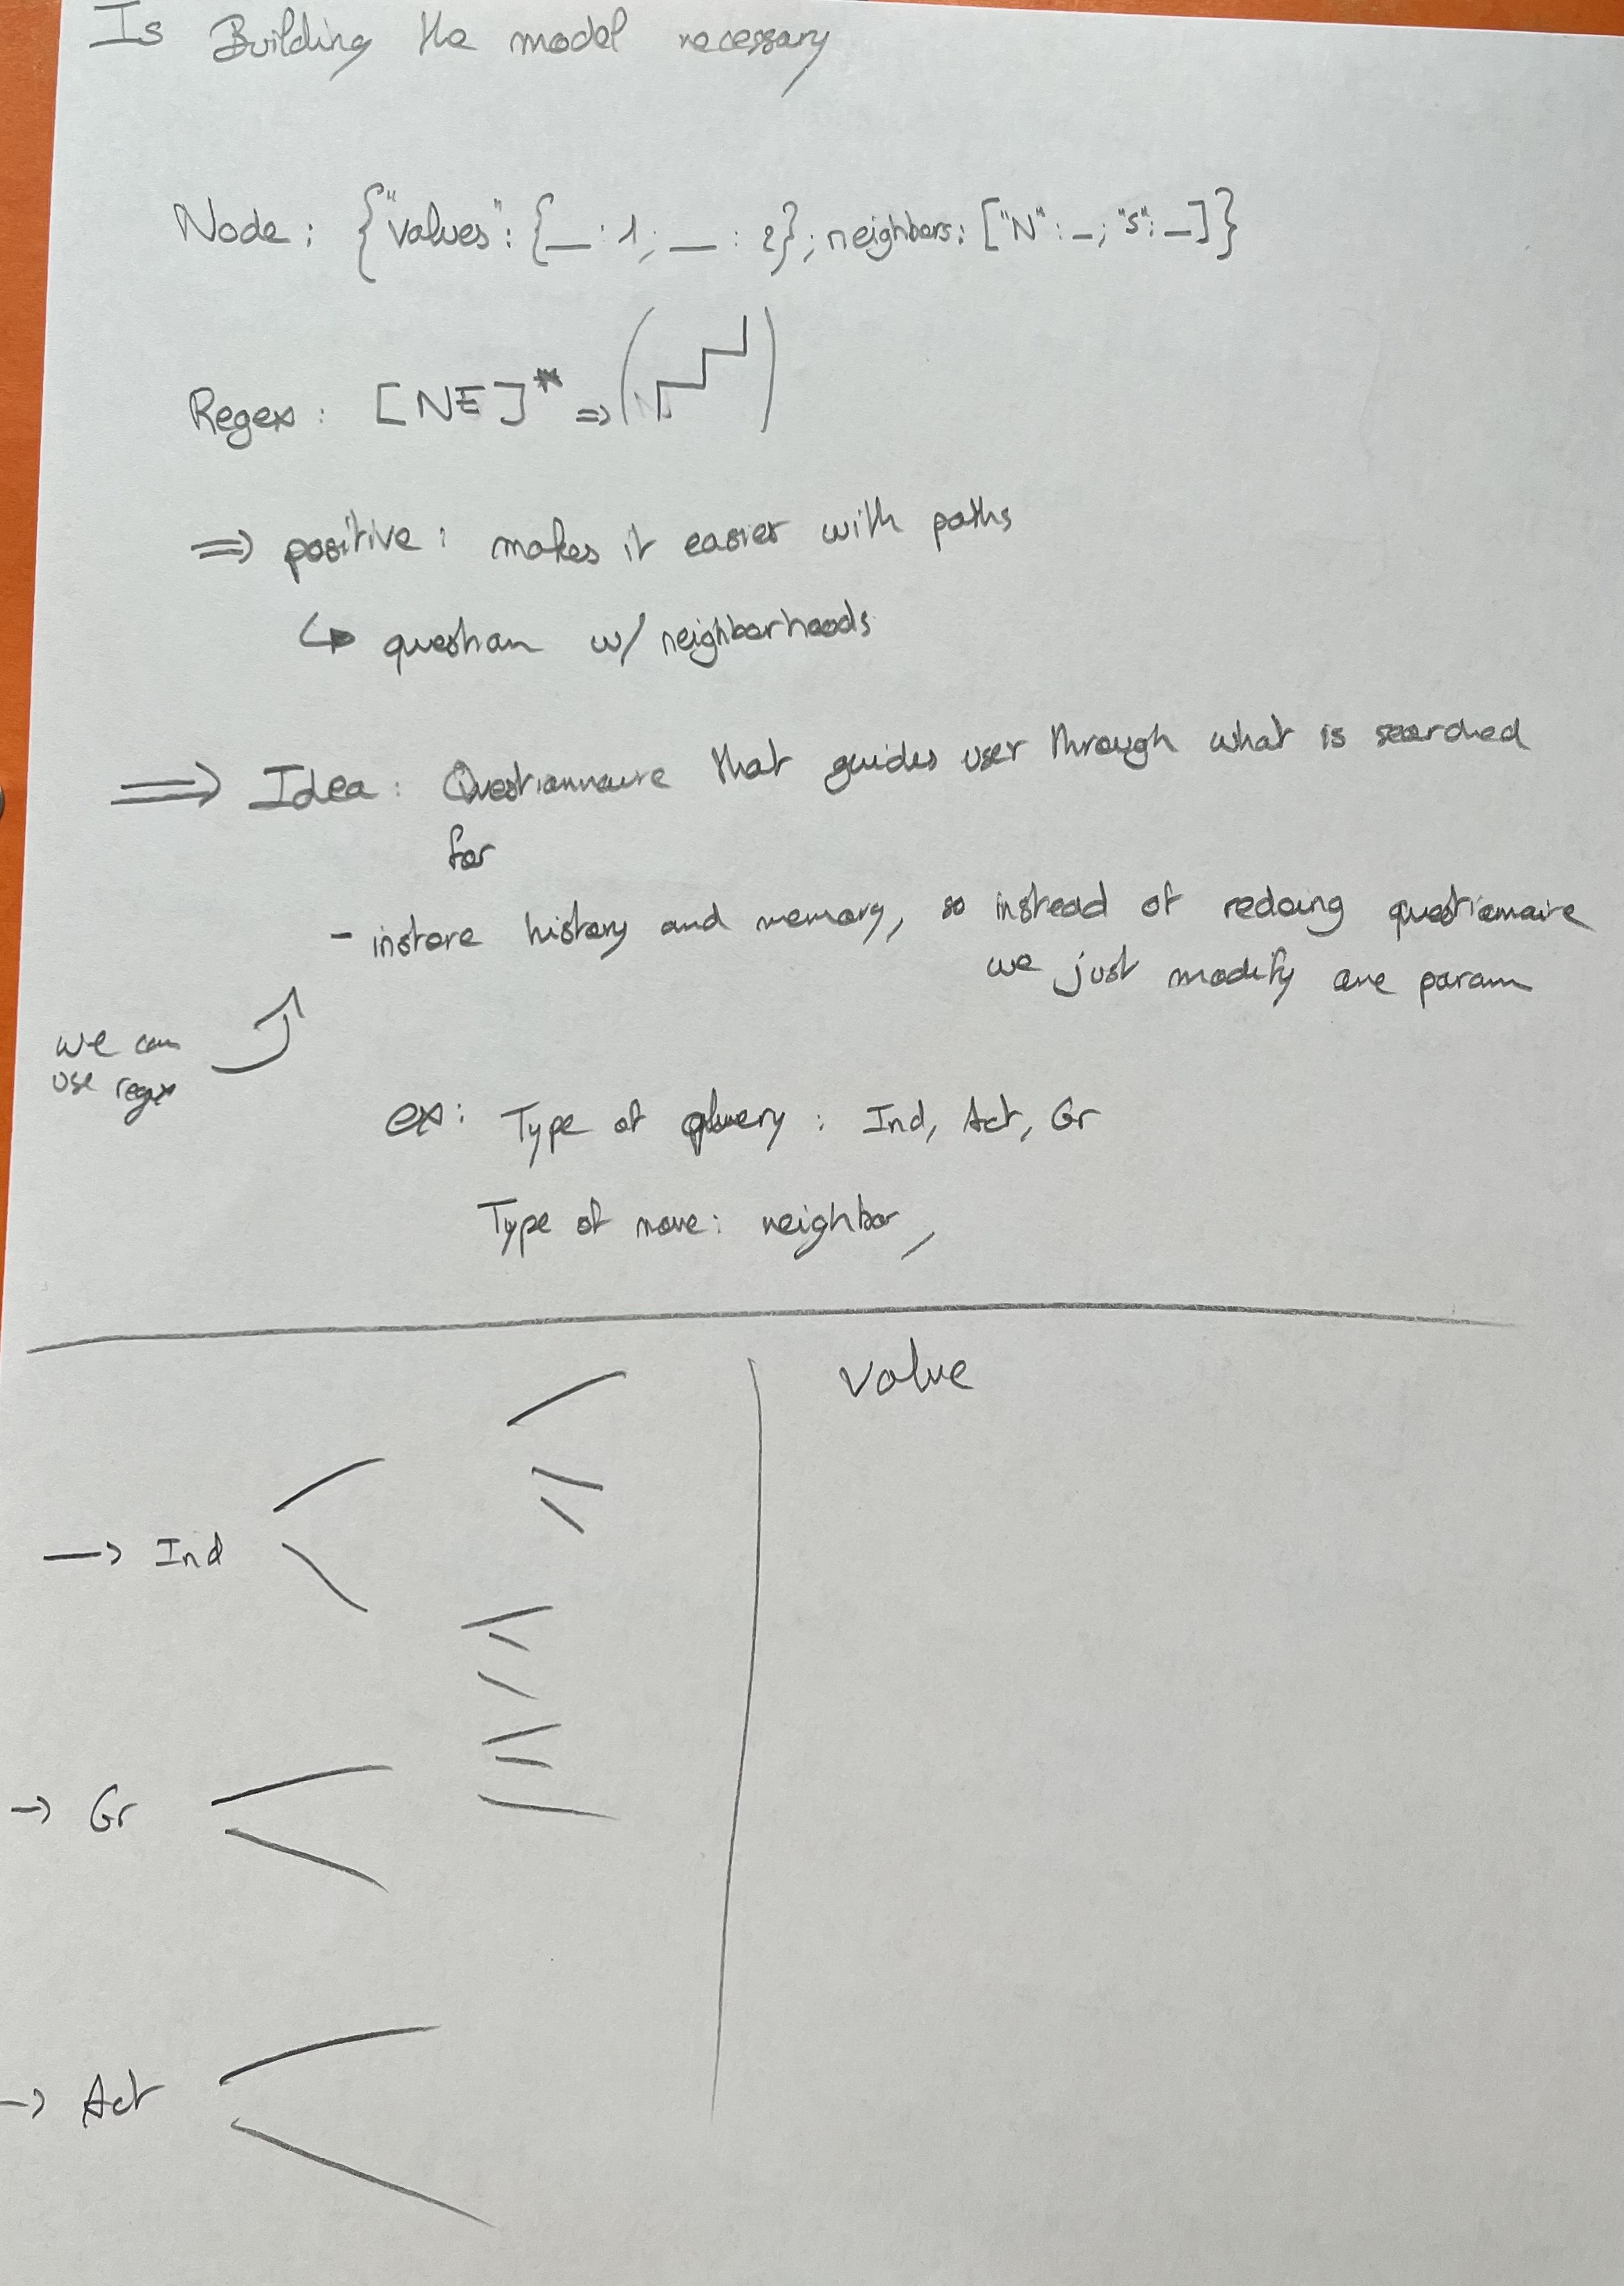 Is Building the model necessary
Node : {"values" : {_ : 1; _ : 2}; neighbors: ["N" : _; "S": _]}
Regex : [NE]* => ( )
=> positive : makes it easier with paths
↳ question w/ neighborhoods
=> Idea : Questionnaire that guides user through what is searched
for
- instore history and memory, so instead of redoing questionnaire
we just modify one param
we can
use regex
ex: Type of query : Ind, Act, Gr
Type of move: neighbor,
value
-> Ind
-> Gr
-> Act